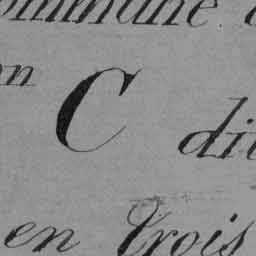 ommune
on C dit
en trois